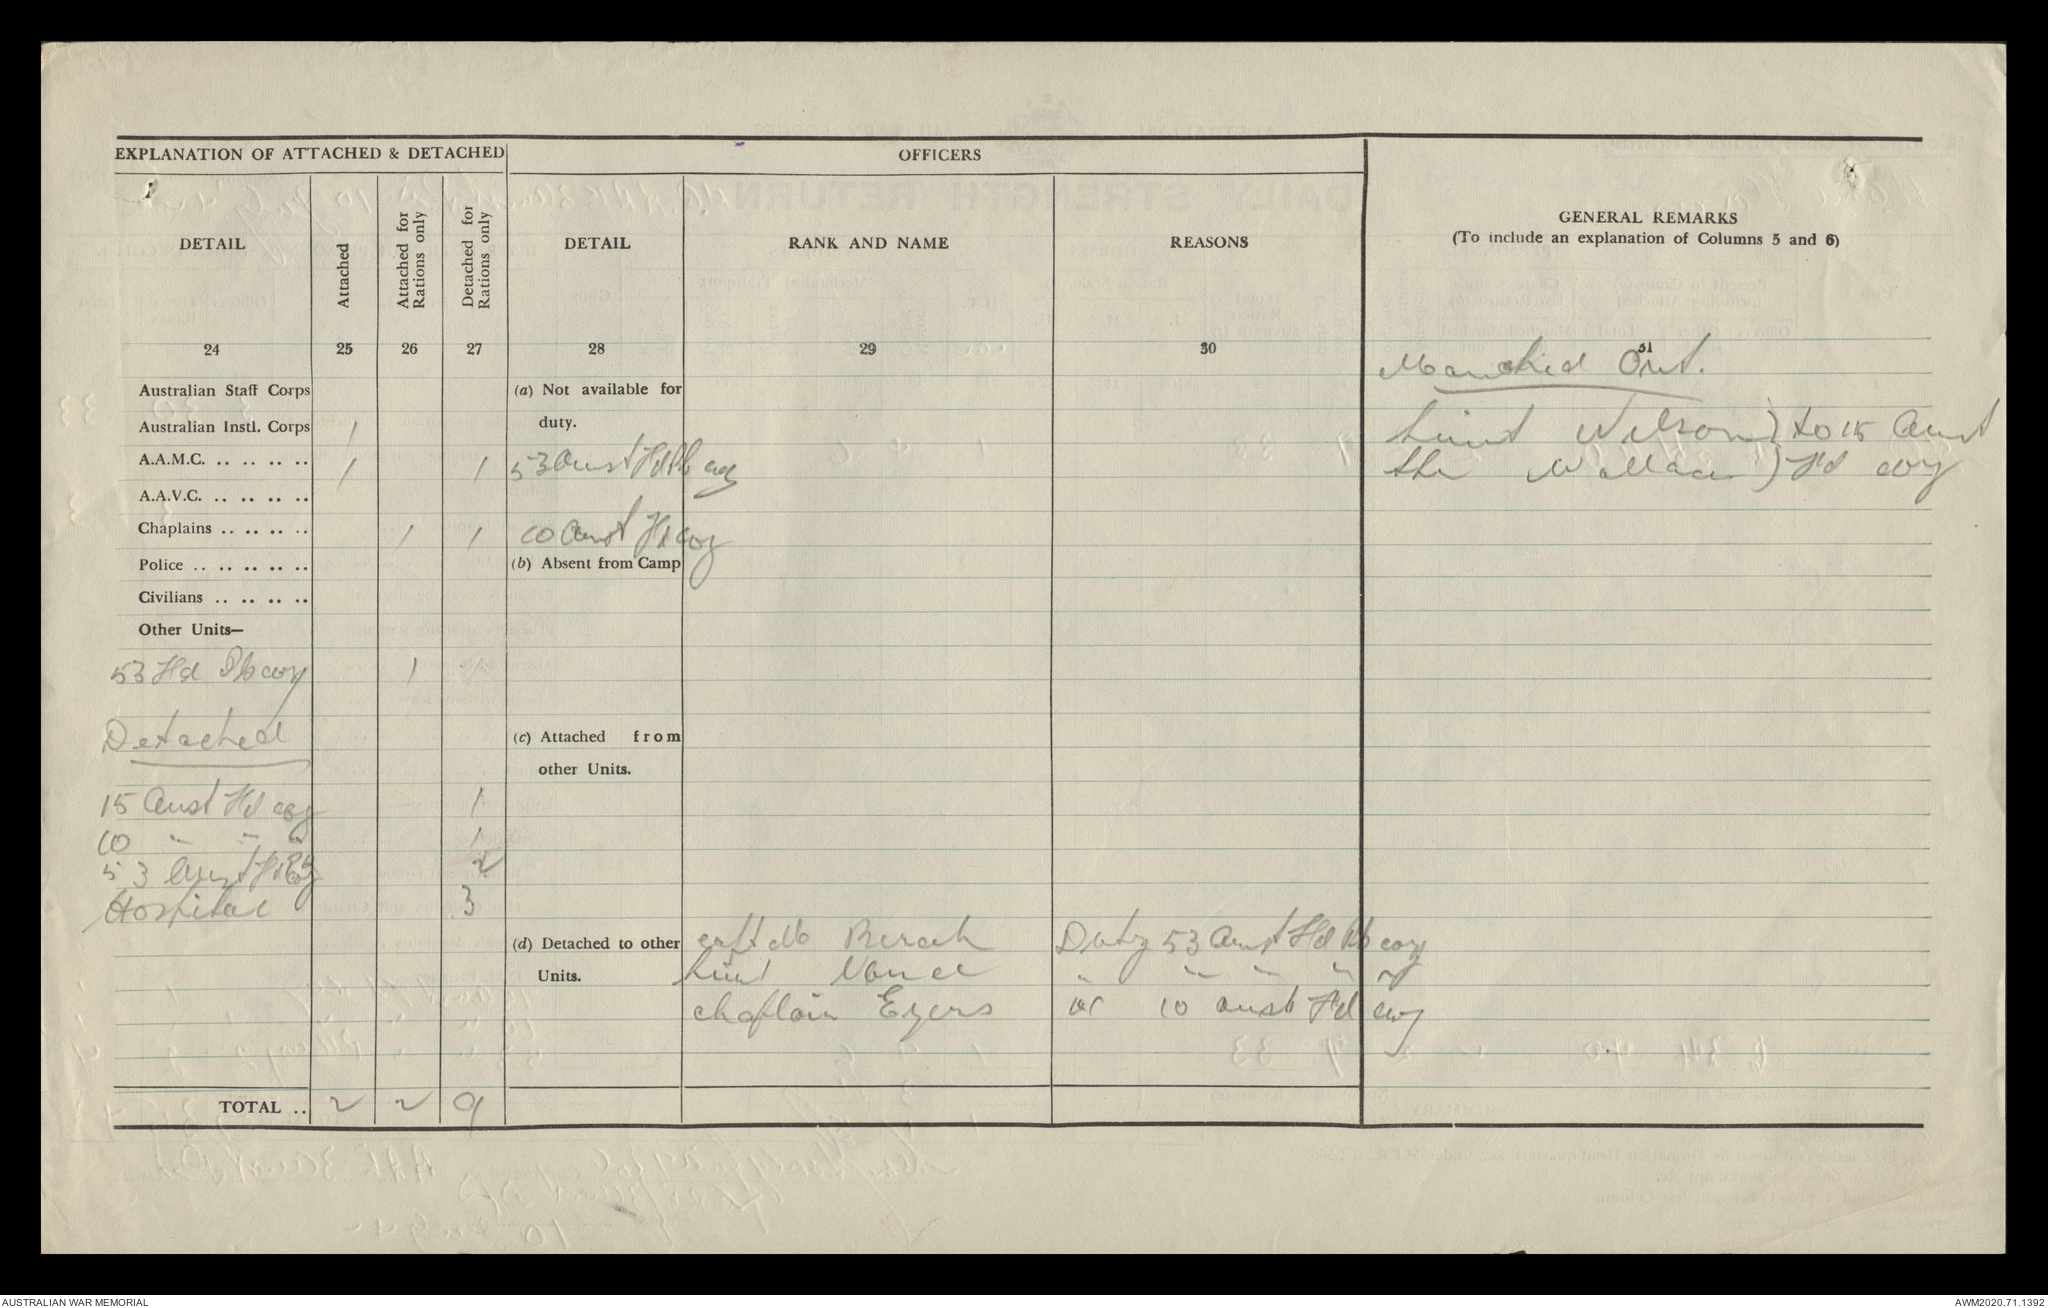 EXPLANATION OF ATTACHED & DETACHED
OFFICERS
GENERAL REMARKS
(To include an explanation of Columns 5 and 6)
DETAIL
Attached
Attached for Rations only
Detached for Rations only
DETAIL
RANK AND NAME
REASONS
24 25 26 27 28 29 30 31
Marched Out.
Australian Staff Corps
(a) Not available for
duty.
Australian Instl. Corps 1
Lieut Wilson ) to 15 Aust
A.A.M.C. .. .. .. .. 1 1 53 Aust Hd coy
Wallace ) Hd coy
A.A.V.C. .. .. .. ..
Chaplains .. .. .. .. 1 1 10 Aust Hd coy
Police .. .. .. .. ..
(b) Absent from Camp
Civilians .. .. .. ..
Other Units—
53 Hd coy 1
Detached
(c) Attached from
other Units.
15 Aust Hd coy 1
10 " " " 1
53 Aust Hd Coy 2
Hospital 3
(d) Detached to other
Units.
Duty 53 Aust Hd coy
Lieut
" " " " "
Chaplain Eyers 10 Aust Hd coy
TOTAL .. 2 2 9
AUSTRALIAN WAR MEMORIAL
AWM2020.71.1392